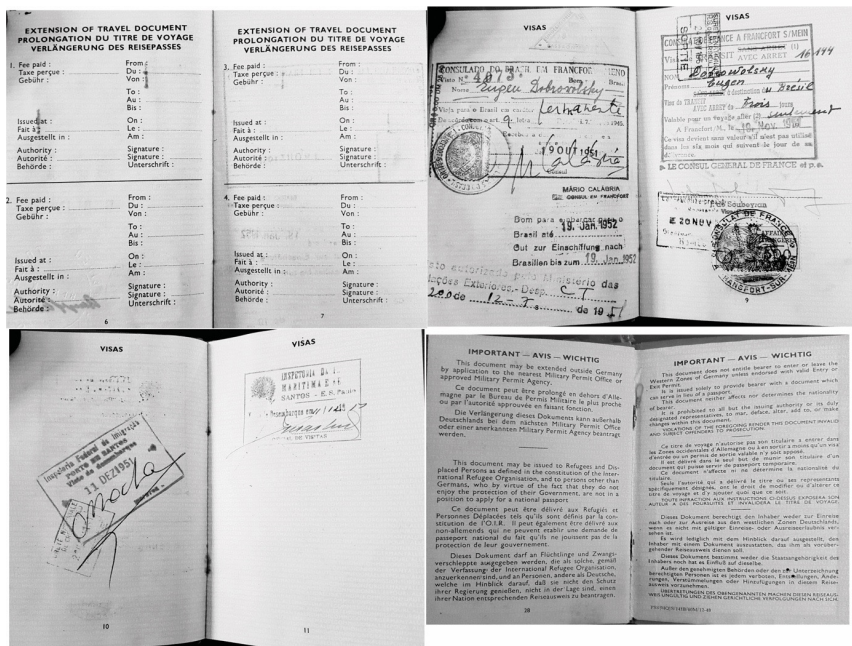 EXTENSION OF TRAVEL DOCUMENT
PROLONGATION DU TITRE DE VOYAGE
VERLÄNGERUNG DES REISEPASSES
1. Fee paid : From :
Taxe perçue : Du :
Gebühr : Von :
To :
Au :
Bis :
Issued at : On :
Fait à : Le :
Ausgestellt in : Am :
Authority : Signature :
Autorité : Signature :
Behörde : Unterschrift :
2. Fee paid : From :
Taxe perçue : Du :
Gebühr : Von :
To :
Au :
Bis :
Issued at : On :
Fait à : Le :
Ausgestellt in : Am :
Authority : Signature :
Autorité : Signature :
Behörde : Unterschrift :
6
EXTENSION OF TRAVEL DOCUMENT
PROLONGATION DU TITRE DE VOYAGE
VERLÄNGERUNG DES REISEPASSES
3. Fee paid : From :
Taxe perçue : Du :
Gebühr : Von :
To :
Au :
Bis :
Issued at : On :
Fait à : Le :
Ausgestellt in : Am :
Authority : Signature :
Autorité : Signature :
Behörde : Unterschrift :
4. Fee paid : From :
Taxe perçue : Du :
Gebühr : Von :
To :
Au :
Bis :
Issued at : On :
Fait à : Le :
Ausgestellt in : Am :
Authority : Signature :
Autorité : Signature :
Behörde : Unterschrift :
7
VISAS
CONSULADO DO BRASIL EM FRANCFORT
Visto Nº
Nome Eugen Dobrovolsky
permanente
19 OUT 1951
Consul
MÁRIO CALÁBRIA
CONSUL EM FRANCFORT
Bom para embarcar para o
Brasil até 19. Jan. 1952
Gut zur Einschiffung nach
Brasilien bis zum 19. Jan. 1952
autorizado pelo Ministerio das
Relações Exteriores.-Desp. C T
200 de 12-7. de 19 51
VISAS
SORTIE
CONSULAT DE FRANCE A FRANCFORT S/MEIN
TRANSIT AVEC ARRET 16144
NOM Dobrowolsky
Prénoms Eugen
à destination du Brésil
AVEC ARRET de trois jours
Valable pour un voyage aller seulement
A Francfort/M., le
Ce visa devient sans valeur s'il n'est pas utilisé
dans les six mois qui suivent le jour de sa
délivrance.
LE CONSUL GENERAL DE FRANCE et p. o.
de Soubeyran
CONSULAT DE FRANCE
FRANCFORT-SUR-MAIN
9
VISAS
Inspetoria Federal de Imigração
PORTO DE SANTOS
Visto de desembarque
11 DEZ 1951
10
VISAS
INSPETORIA DA
MARITIMA E
SANTOS - E. S. Paulo
Desembarque em
FISCAL DE VISITAS
11
IMPORTANT — AVIS — WICHTIG
This document may be extended outside Germany
by application to the nearest Military Permit Office or
approved Military Permit Agency.
Ce document peut être prolongé en dehors d'Alle-
magne par le Bureau de Permis Militaire le plus proche
ou par l'autorité approuvée en faisant fonction.
Die Verlängerung dieses Dokuments kann außerhalb
Deutschlands bei dem nächsten Military Permit Office
oder einer anerkannten Military Permit Agency beantragt
werden.
This document may be issued to Refugees and Dis-
placed Persons as defined in the constitution of the Inter-
national Refugee Organisation, and to persons other than
Germans, who by virtue of the fact that they do not
enjoy the protection of their Government, are not in a
position to apply for a national passport.
Ce document peut être délivré aux Refugiés et
Personnes Déplacées tels qu'ils sont définis par la cons-
titution de l'O.I.R. Il peut également être délivré aux
non-allemands qui ne peuvent etablir une demande de
passeport national du fait qu'ils ne jouissent pas de la
protection de leur gouvernement.
Dieses Dokument darf an Flüchtlinge und Zwangs-
verschleppte ausgegeben werden, die als solche, gemäß
der Verfassung der International Refugee Organisation,
anzuerkennen sind, und an Personen, andere als Deutsche,
welche im Hinblick darauf, daß sie nicht den Schutz
ihrer Regierung genießen, nicht in der Lage sind, einen
ihrer Nation entsprechenden Reiseausweis zu beantragen.
IMPORTANT — AVIS — WICHTIG
This document does not entitle bearer to enter or leave the
Western Zones of Germany unless endorsed with valid Entry or
Exit Permit.
It is issued solely to provide bearer with a document which
can serve in lieu of a passport.
This document neither affects nor determines the nationality
of bearer.
It is prohibited to all but the issuing authority or its duly
designated representatives, to mar, deface, alter, add to, or make
changes within this document.
VIOLATIONS OF THE FOREGOING RENDER THIS DOCUMENT INVALID
AND SUBJECT OFFENDERS TO PROSECUTION.
Ce titre de voyage n'autorise pas son titulaire à entrer dans
les Zones occidentales d'Allemagne ou à en sortir à moins qu'un visa
d'entrée ou un permis de sortie valable n'y soit apposé.
Il est délivré dans le seul but de munir son titulaire d'un
document qui puisse servir de passeport temporaire.
Ce document n'affecte ni ne détermine la nationalité du
titulaire.
Seule l'autorité qui a délivré le titre ou ses représentants
spécifiquement désignés, ont le droit de modifier ou d'altérer ce
titre de voyage et d'y ajouter quoi que ce soit.
TOUTE INFRACTION AUX INSTRUCTIONS CI-DESSUS EXPOSERA SON
AUTEUR A DES POURSUITES ET INVALIDERA LE TITRE DE VOYAGE.
Dieses Dokument berechtigt den Inhaber weder zur Einreise
nach oder zur Ausreise aus den westlichen Zonen Deutschlands,
wenn es nicht mit gültiger Einreise- oder Ausreiseerlaubnis ver-
sehen ist.
Es wird lediglich mit dem Hinblick darauf ausgestellt, den
Inhaber mit einem Dokument auszustatten, das ihm als vorüber-
gehender Reiseausweis dienen soll.
Dieses Dokument bestimmt weder die Staatsangehörigkeit des
Inhabers noch hat es Einfluß auf dieselbe.
Außer den genehmigten Behörden oder den zur Unterzeichnung
berechtigten Personen ist es jedem verboten, Entstellungen, Ände-
rungen, Verstümmelungen oder Hinzufügungen in diesem Reise-
ausweis vorzunehmen.
ÜBERTRETUNGEN DES OBENGENANNTEN MACHEN DIESEN REISEAUS-
WEIS UNGÜLTIG UND ZIEHEN GERICHTLICHE VERFOLGUNGEN NACH SICH.